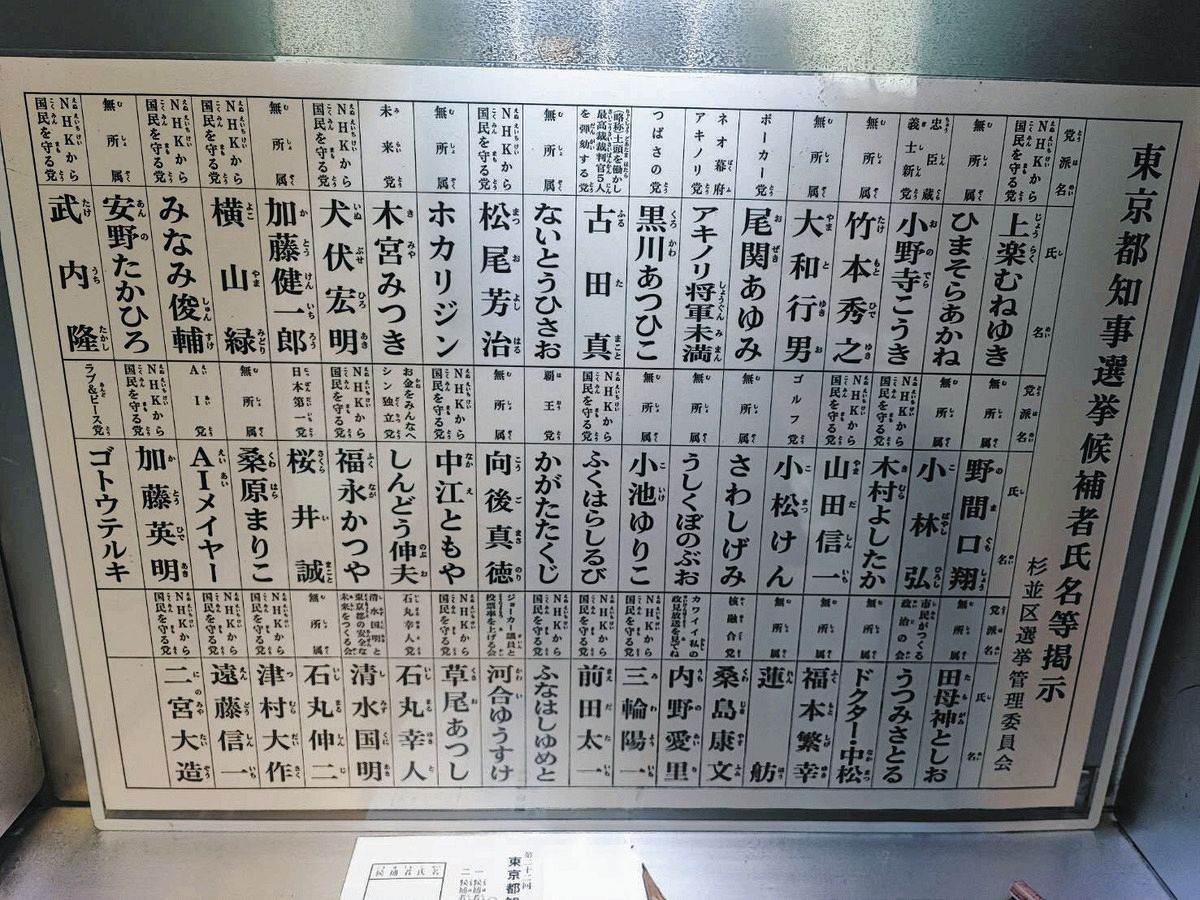 東京都知事選挙候補者氏名等掲示
杉並区選挙管理委員会
党派名
氏名
NHKから
国民を守る党
上楽むねゆき
無所属
ひまそらあかね
忠臣蔵
義士新党
小野寺こうき
無所属
竹本秀之
無所属
大和行男
ポーカー党
尾関あゆみ
ネオ幕府
アキノリ党
アキノリ将軍未満
つばさの党
黒川あつひこ
最高裁裁判官5人
を弾劾する党
古田真
無所属
ないとうひさお
NHKから
国民を守る党
松尾芳治
無所属
ホカリジン
未来党
木宮みつき
NHKから
国民を守る党
犬伏宏明
無所属
加藤健一郎
NHKから
国民を守る党
横山緑
NHKから
国民を守る党
みなみ俊輔
無所属
安野たかひろ
NHKから
国民を守る党
武内隆
党派名
氏名
無所属
野間口翔
無所属
小林弘
NHKから
国民を守る党
木村よしたか
NHKから
国民を守る党
山田信一
ゴルフ党
小松けん
無所属
さわしげみ
無所属
うしくぼのぶお
無所属
小池ゆりこ
NHKから
国民を守る党
ふくはらしるび
覇王党
かがたたくじ
無所属
向後真徳
NHKから
国民を守る党
中江ともや
お金をみんなへ
シン独立党
しんどう伸夫
NHKから
国民を守る党
福永かつや
日本第一党
桜井誠
無所属
桑原まりこ
AI党
AIメイヤー
NHKから
国民を守る党
加藤英明
ラブ&ピース党
ゴトウテルキ
党派名
氏名
無所属
田母神としお
市民がつくる
政治の会
うつみさとる
無所属
ドクター・中松
無所属
福本繁幸
無所属
蓮舫
核融合党
桑島康文
カワイイ私の
政見放送を見てね
内野愛里
NHKから
国民を守る党
三輪陽一
NHKから
国民を守る党
前田太一
NHKから
国民を守る党
ふなはしゆめと
ジョーカー議員と
投票率を上げる会
河合ゆうすけ
NHKから
国民を守る党
草尾あつし
石丸幸人党
石丸幸人
清水国明と
東京都の安全な
未来をつくる会
清水国明
無所属
石丸伸二
NHKから
国民を守る党
津村大作
NHKから
国民を守る党
遠藤信一
NHKから
国民を守る党
二宮大造
第二十二回
東京都知